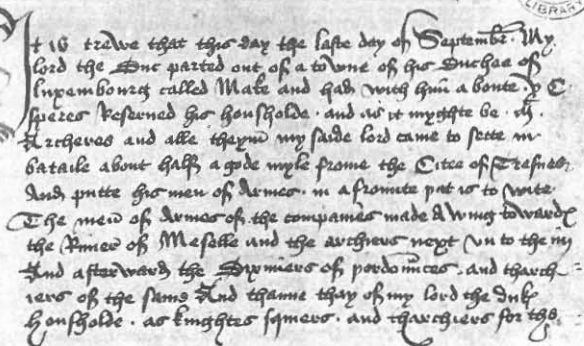 LIBRARY
It is trewe that this day the laste day of Septembr. My
lord the Duc parted out of a towne of his Duchee of
luxembourg called Make and had with hym aboute. v C
speres Reserved his housholde. and as it myghte be. .m.
Archeres and alle theym my saide lord came to sette in
bataile about half a gode myle frome the Citee of Treves.
And putte his men of Armes. in a frounte þat is to wite
The men of Armes of the companies made A wing towards
the River of Meselle and the archiers next vn to the
And afterward the of ordonnances. and tharch
iers of the same And thanne thay of my lord the duks
housholde. as knightes squiers. and tharchiers for the